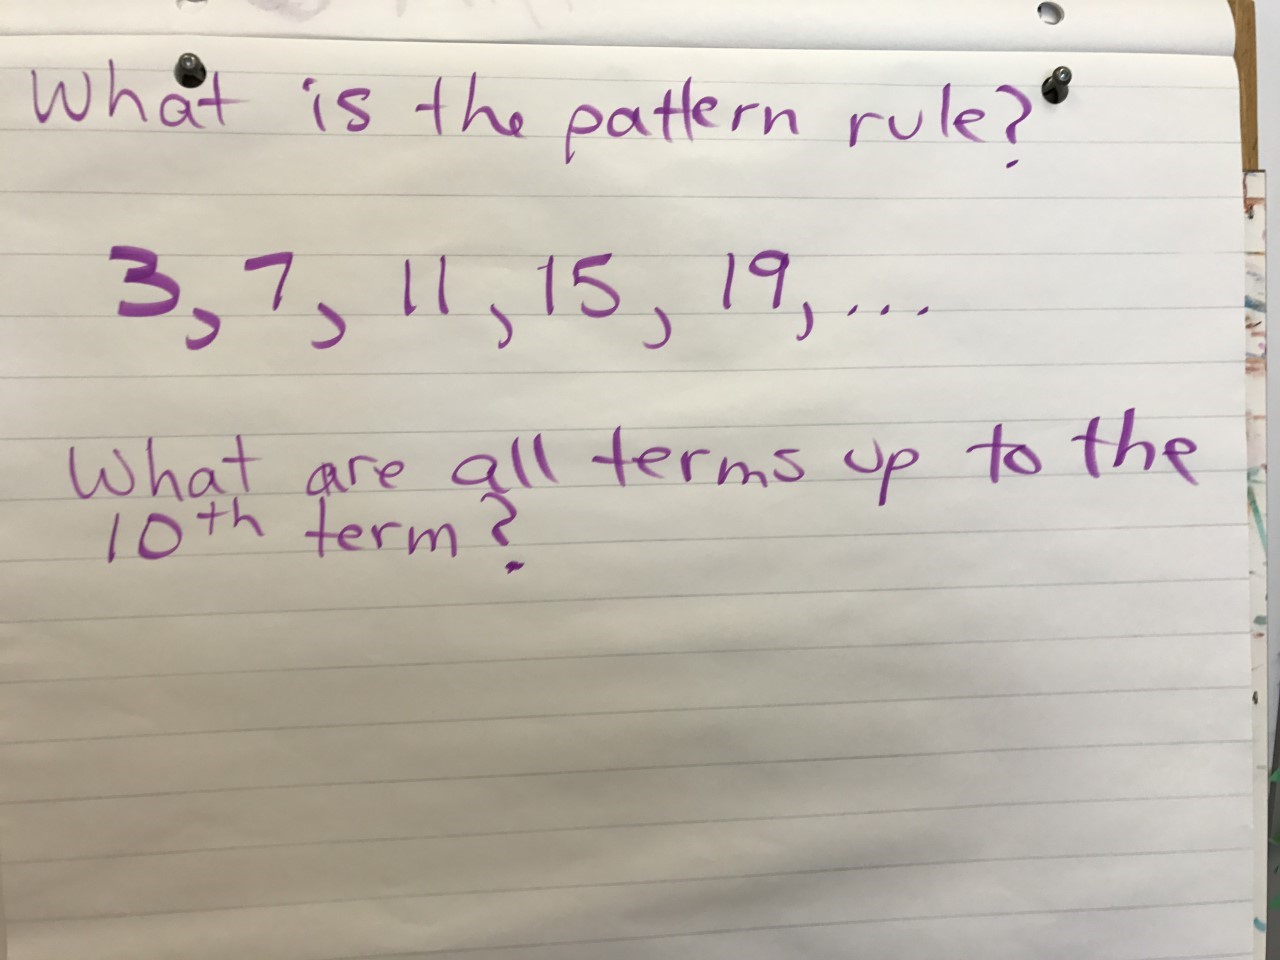 What is the pattern rule?
3, 7, 11, 15, 19, ...
What are all terms up to the
10th term?